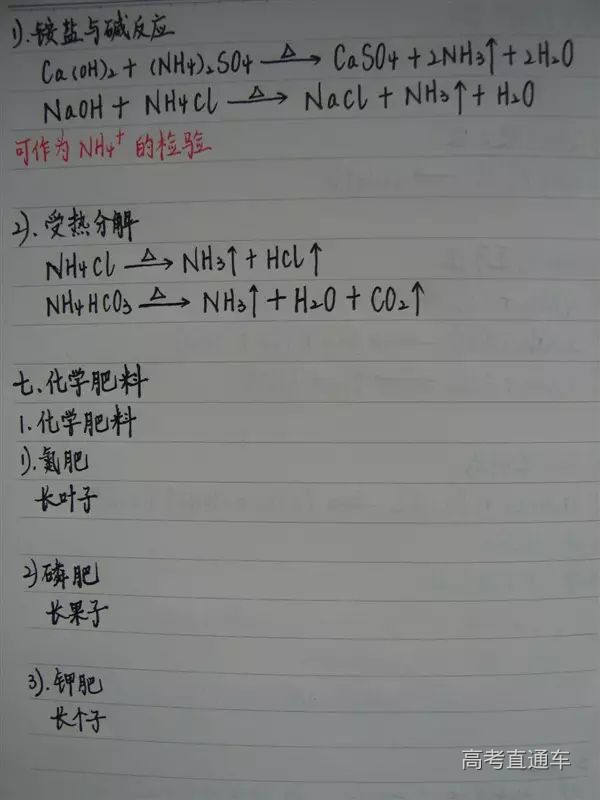 1).铵盐与碱反应
Ca(OH)₂ + (NH₄)₂SO₄ —Δ→ CaSO₄ + 2NH₃↑ + 2H₂O
NaOH + NH₄Cl —Δ→ NaCl + NH₃↑ + H₂O
可作为 NH₄⁺ 的检验
2).受热分解
NH₄Cl —Δ→ NH₃↑ + HCl↑
NH₄HCO₃ —Δ→ NH₃↑ + H₂O + CO₂↑
七.化学肥料
1.化学肥料
1).氮肥
长叶子
2)磷肥
长果子
3).钾肥
长个子
高考直通车